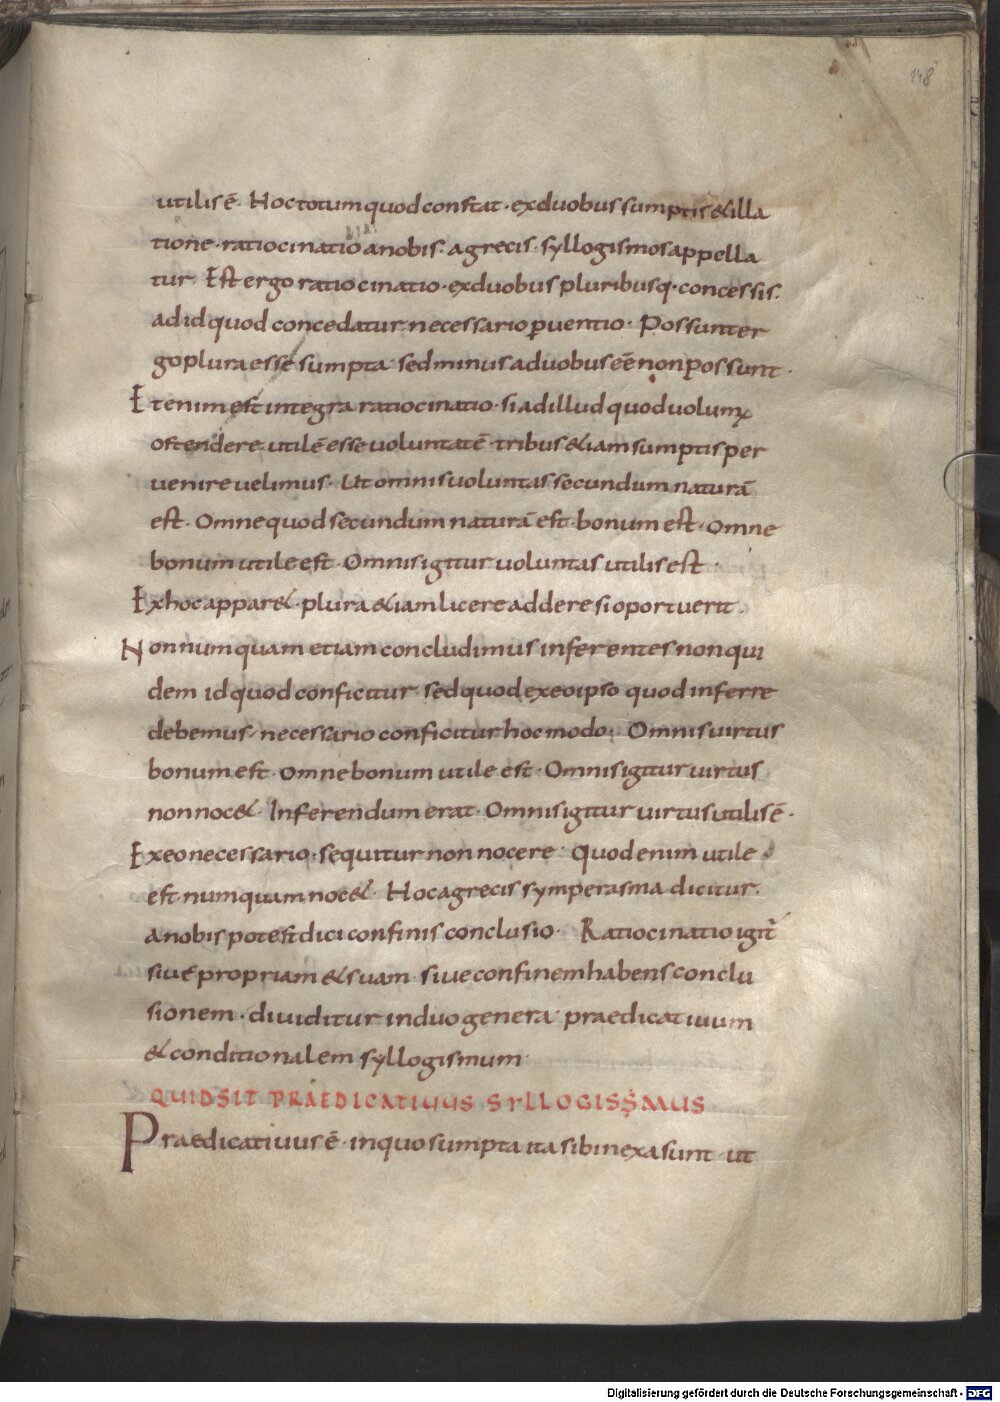 148
utilis ē· Hoc totum quod constat· ex duobus sumptis & illa
tione· ratiocinatio a nobis· a grecis· syllogismos appella
tur· Est ergo ratiocinatio· ex duobus pluribusq· concessis·
ad id quod concedatur necessario puentio· Possunt er
go plura esse sumpta· sed minus a duobus eē non possunt·
Etenim est integra ratiocinatio· si ad illud quod uolum;
ostendere· utilē esse uoluntatē· tribus &iam sumptis per
uenire uelimus· Ut omnis uoluntas secundum naturā
est· Omne quod secundum naturā est· bonum est· Omne
bonum utile est· Omnis igitur uoluntas utilis est·
Ex hoc appar&· plura &iam licere addere si oportuerit·
Non numquam etiam concludimus inferentes non qui
dem id quod conficitur· sed quod ex eo ipso quod inferre
debemus· necessario conficitur hoc modo· Omnis uirtus
bonum est· Omne bonum utile est· Omnis igitur uirtus
non noc&· Inferendum erat· Omnis igitur uirtus utilis ē·
Ex eo necessario· sequitur non nocere· Quod enim utile
est· numquam noc&· Hoc a grecis symperasma dicitur·
a nobis potest dici confinis conclusio· Ratiocinatio igit̄
siue propriam & suam· siue confinem habens conclu
sionem· diuiditur in duo genera· praedicatiuum
& conditionalem syllogismum·
QUID SIT PRAEDICATIUUS SYLLOGISSMUS
Praedicatiuus ē· in quo sumpta ita sibi nexa sunt· ut
Digitalisierung gefördert durch die Deutsche Forschungsgemeinschaft - DFG